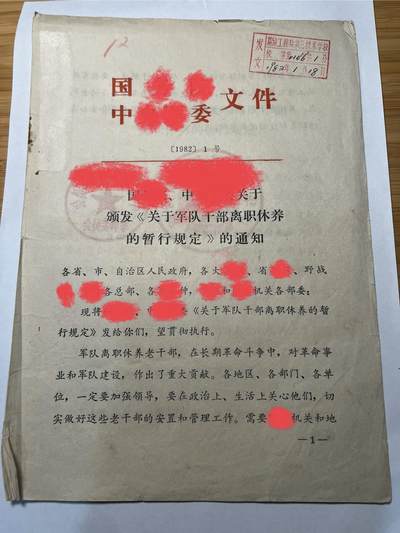 12
发文
国 文件
中 委
〔1982〕1 号
国 、中 关于
颁发《关于军队干部离职休养
的暂行规定》的通知
各省、市、自治区人民政府，各大 、省 、野战
各总部、各 种， 和 机关各部委：
现将 、中 《关于军队干部离职休养的暂
行规定》发给你们，望贯彻执行。
军队离职休养老干部，在长期革命斗争中，对革命事
业和军队建设，作出了重大贡献。各地区、各部门、各单
位，一定要加强领导，要在政治上、生活上关心他们，切
实做好这些老干部的安置和管理工作。需要 机关和地
—1—